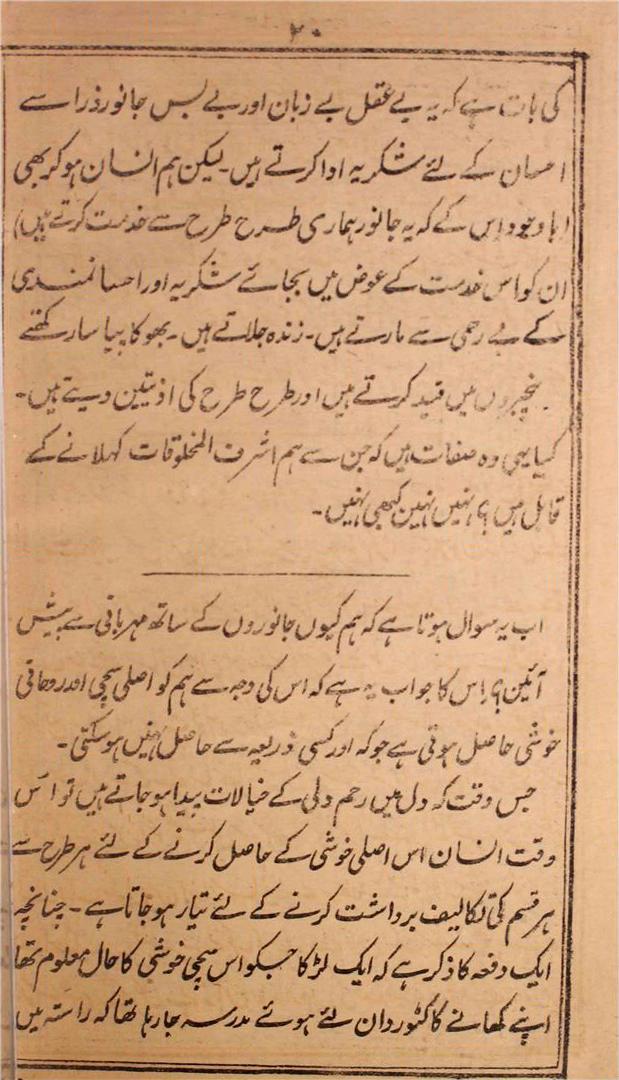 ۲۰
کی بات ہے کہ یہ بے عقل بے زبان اور بے بس جانور ذرا سے
احسان کے لئے شکریہ ادا کرتے ہیں۔ لیکن ہم انسان ہو کر بھی
(باوجود اِس کے کہ یہ جانور ہماری طرح طرح سے خدمت کرتے ہیں)
ان کو اس خدمت کے عوض میں بجائے شکریہ اور احسانمندی
کے بے رحمی سے مارتے ہیں۔ زندہ جلاتے ہیں۔ بھوکا پیاسا رکھتے
پنجیروں میں قید کرتے ہیں اور طرح طرح کی اذیتین دیتے ہیں۔
کیا یہی وہ صفات ہیں کہ جن سے ہم اشرف المخلوقات کہلانے کے
قابل ہیں؟ نہیں نہین کبھی نہیں۔
اب یہ سوال ہوتا ہے کہ ہم کیوں جانوروں کے ساتھ مہربانی سے پیش
آئین؟ اِس کا جواب یہ ہے کہ اس کی وجہ سے ہم کو اصلی سچی اور روحانی
خوشی حاصل ہوتی ہے جو کہ اور کسی ذریعہ سے حاصل نہیں ہو سکتی۔
جس وقت کہ دل میں رحم دلی کے خیالات پیدا ہو جاتے ہیں تو اُس
وقت انسان اس اصلی خوشی کے حاصل کرنے کے لئے ہر طرح سے
ہر قسم کی تکالیف برداشت کرنے کے لئے تیار ہو جاتا ہے۔ چنانچہ
ایک دفعہ کا ذکر ہے کہ ایک لڑکا جسکو اس سچی خوشی کا حال معلوم تھا
اپنے کھانے کا کٹوردان لئے ہوئے مدرسہ جا رہا تھا کہ راستہ میں